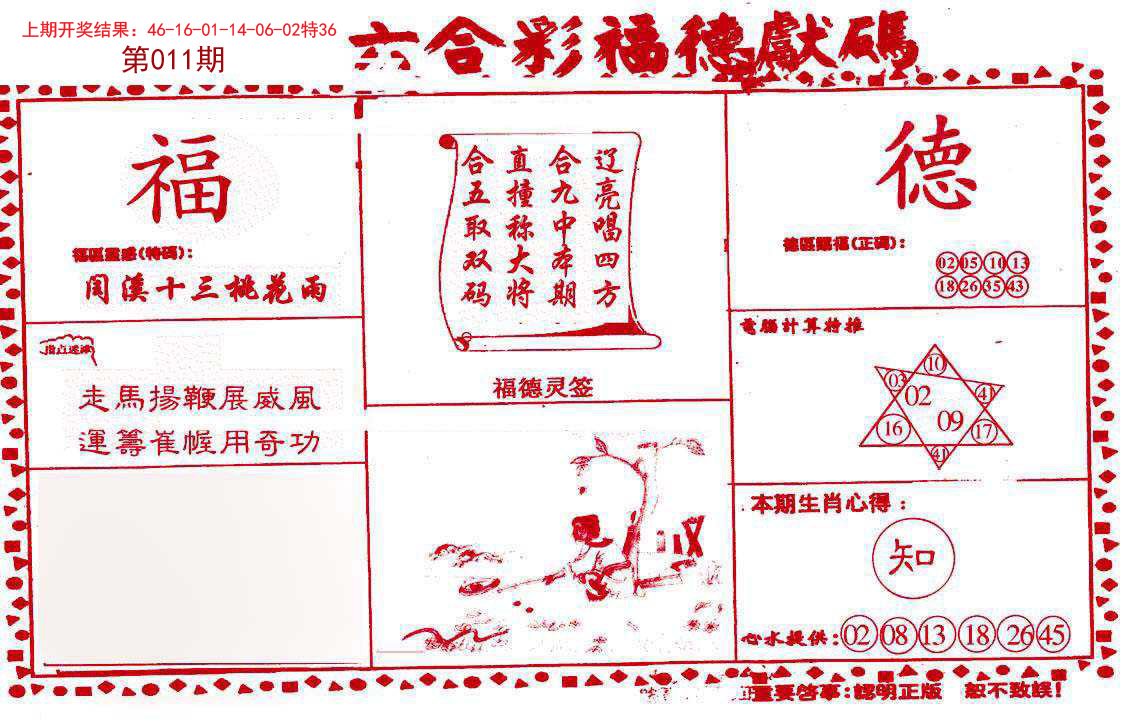 上期开奖结果：46-16-01-14-06-02特36
第011期
六合彩福德獻碼
福
福區靈感(特碼)：
閏溪十三桃花雨
指点迷津
走馬揚鞭展威風
運籌崔幄用奇功
辽亮唱四方
合九中本期
直撞称大将
合五取双码
福德灵签
德
德區賜福(正碼)：
02 05 10 13
18 26 35 43
電腦計算特推
10
03 02 41
16 09 17
41
本期生肖心得：
知
心水提供：02 08 13 18 26 45
重要啓事：認明正版 恕不致誤！